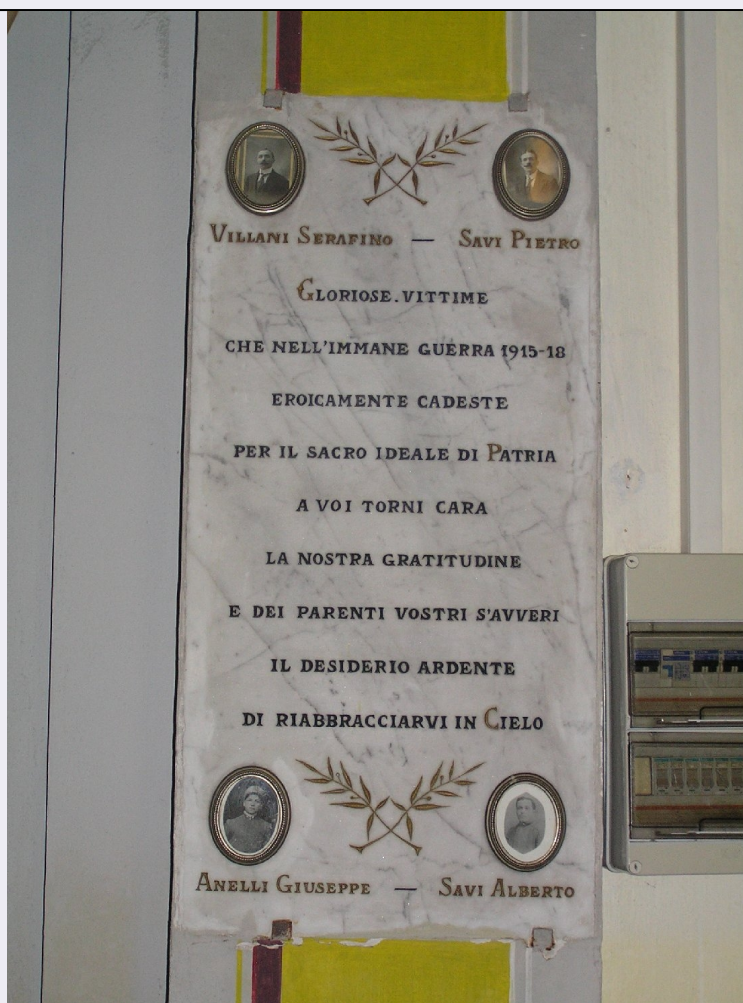 VILLANI SERAFINO — SAVI PIETRO
GLORIOSE.VITTIME
CHE NELL'IMMANE GUERRA 1915-18
EROICAMENTE CADESTE
PER IL SACRO IDEALE DI PATRIA
A VOI TORNI CARA
LA NOSTRA GRATITUDINE
E DEI PARENTI VOSTRI S'AVVERI
IL DESIDERIO ARDENTE
DI RIABBRACCIARVI IN CIELO
ANELLI GIUSEPPE — SAVI ALBERTO